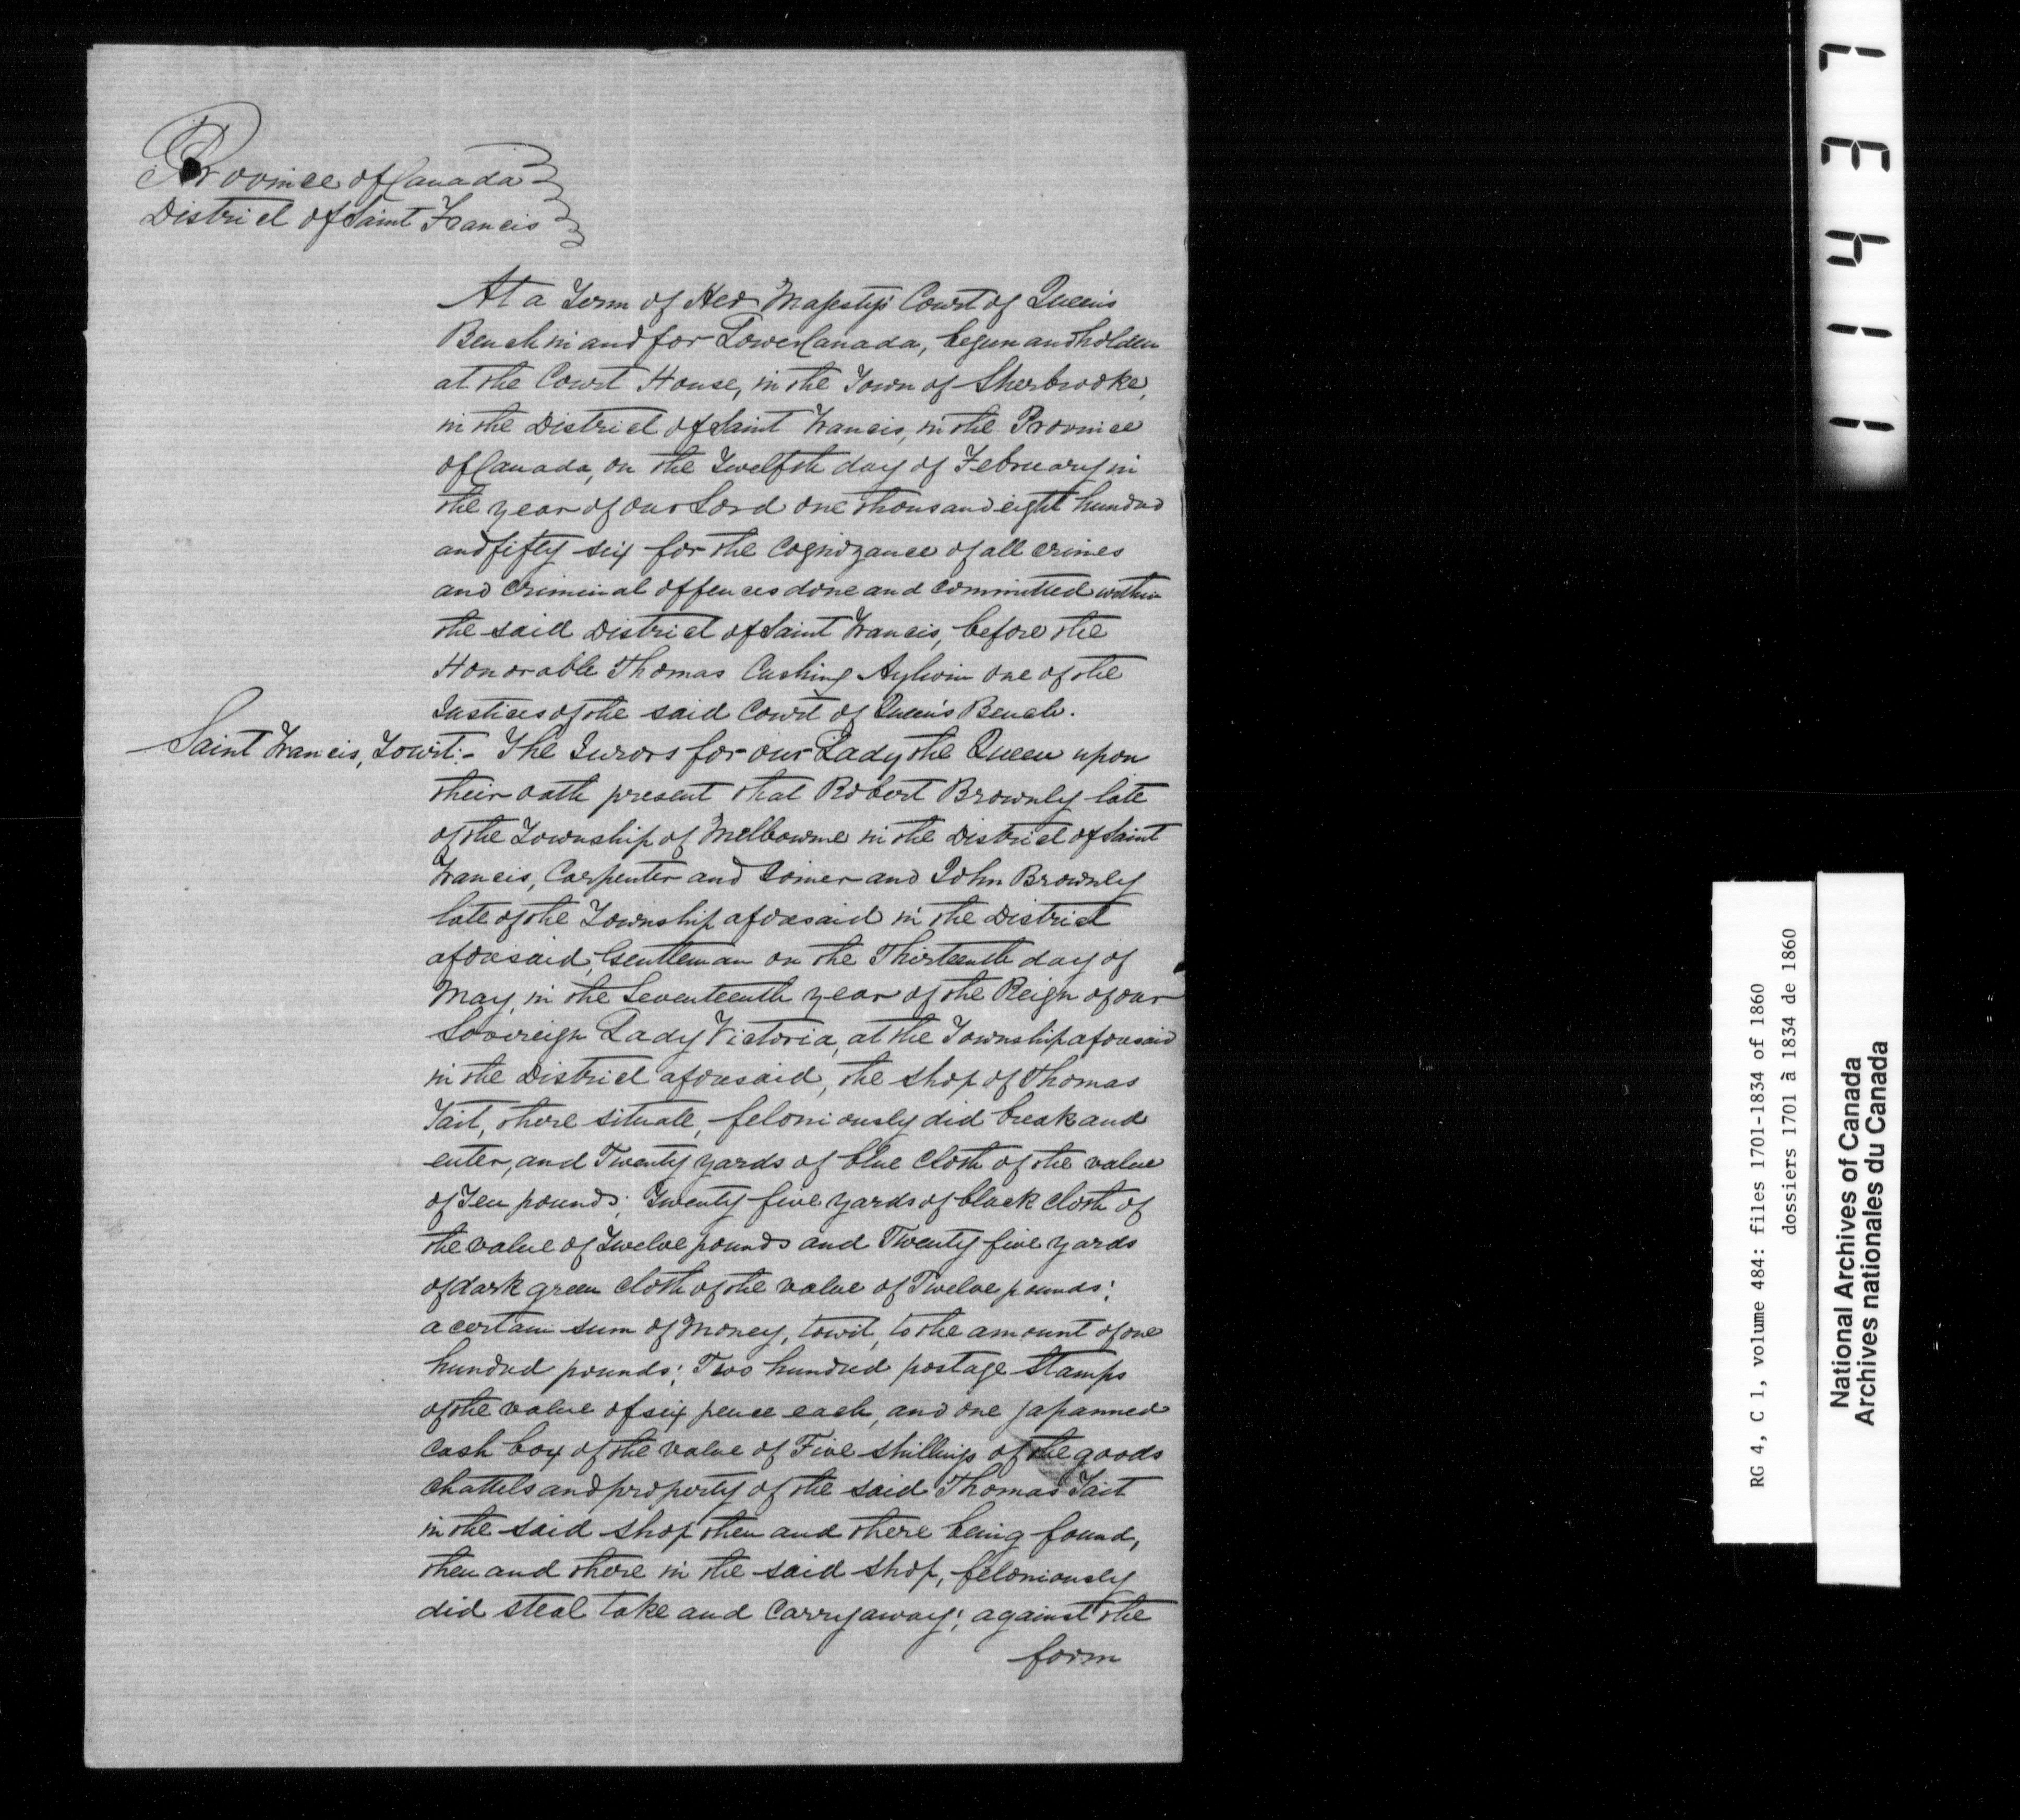 Province of Canada
District of Saint Francis
At a Term of Her Majesty's Court of Queen's
Bench in and for Lower Canada, begun and holden
at the Court House, in the Town of Sherbrooke,
in the District of Saint Francis, in the Province
of Canada, on the Twelfth day of February in
the year of our Lord one thousand eight hundred
and fifty six for the Cognizance of all crimes
and criminal offences done and committed within
the said District of Saint Francis, before the
Honorable Thomas Cushing Aylwin one of the
Justices of the said Court of Queen's Bench.
Saint Francis, Towit:- The Jurors for our Lady the Queen upon
their oath present that Robert Brownly late
of the Township of Melbourne in the District of Saint
Francis, Carpenter and Joiner and John Brownly
late of the Township aforesaid in the District
aforesaid, Gentleman on the Thirteenth day of
May, in the Seventeenth year of the Reign of our
Sovereign Lady Victoria, at the Township aforesaid
in the District aforesaid, the shop of Thomas
Tait, there situate, feloniously did break and
enter, and Twenty yards of blue cloth of the value
of Ten pounds; Twenty five yards of black cloth of
the value of Twelve pounds and Twenty five yards
of dark green cloth of the value of Twelve pounds;
a certain sum of Money, towit, to the amount of one
hundred pounds; Two hundred postage stamps
of the value of six pence each, and one japanned
cash box of the value of Five shillings of the goods
chattels and property of the said Thomas Tait
in the said shop then and there being found,
then and there in the said shop, feloniously
did steal take and carry away; against the
form
11437
RG 4, C 1, volume 484: files 1701-1834 of 1860
dossiers 1701 à 1834 de 1860
National Archives of Canada
Archives nationales du Canada